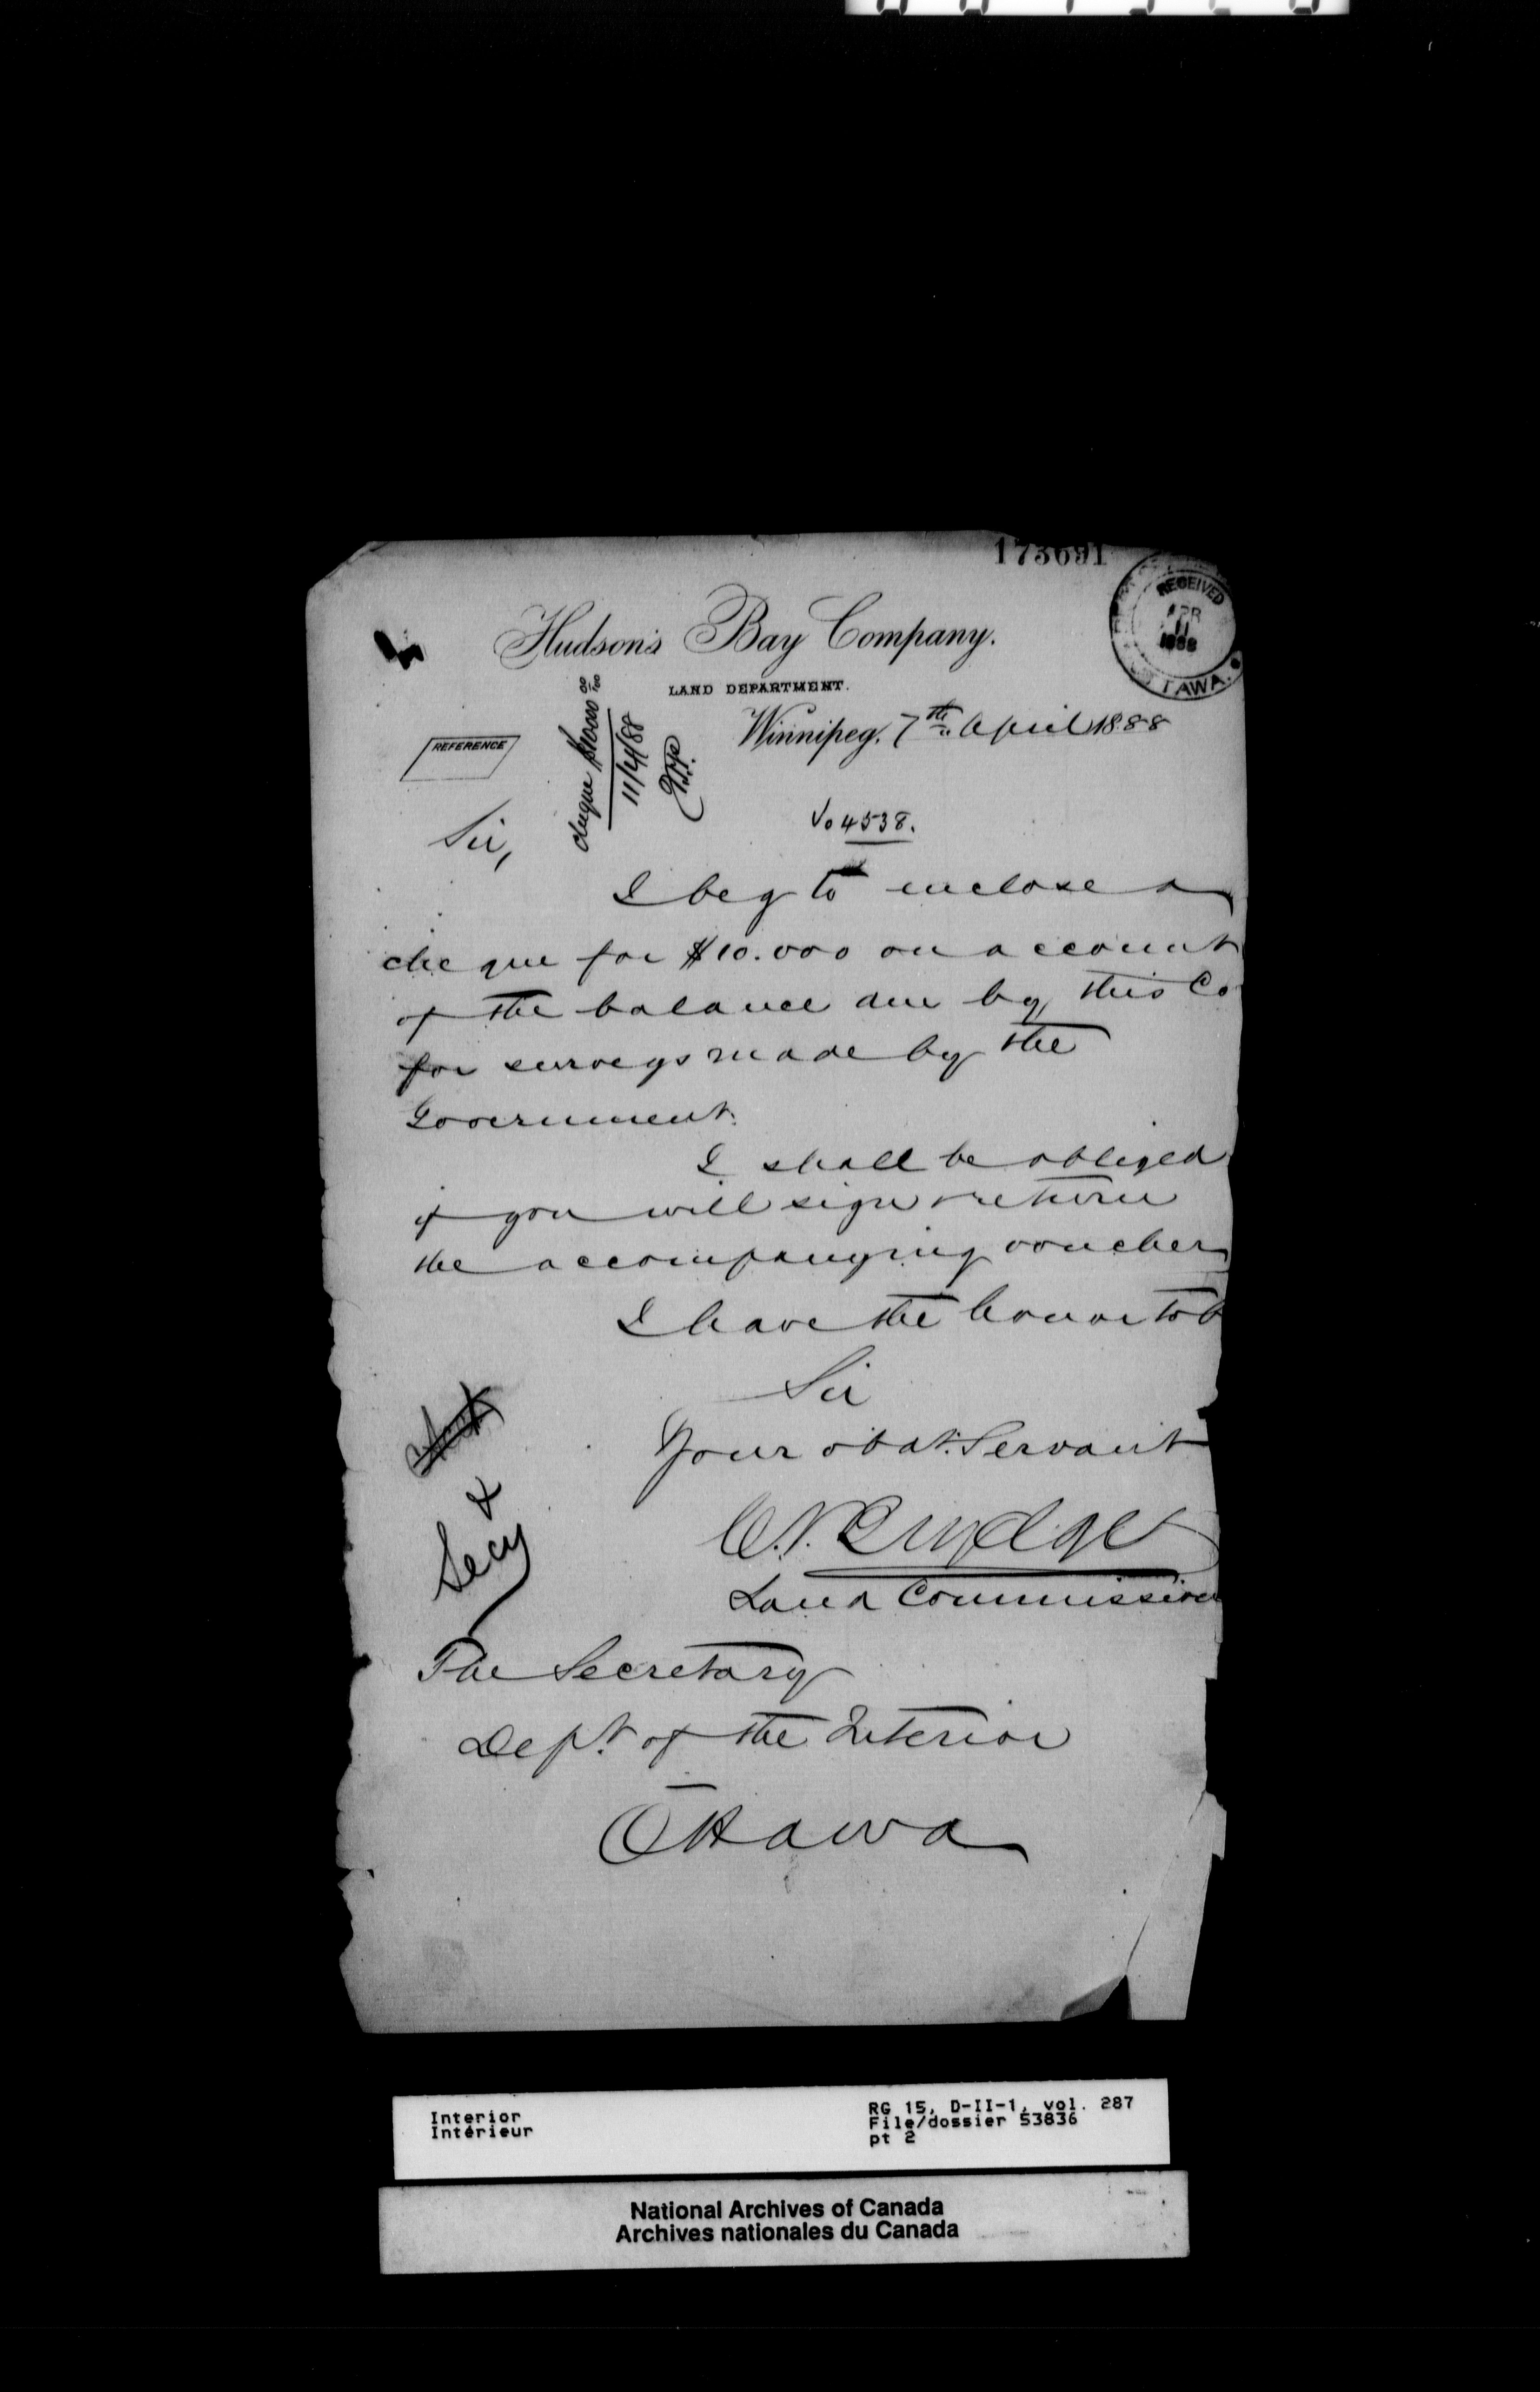 173691
RECEIVED
APR
11
1888
OTTAWA.
Hudson's Bay Company.
LAND DEPARTMENT.
REFERENCE
Winnipeg, 7th April 1888
cheque $10000 00/100
11/4/88
Vo 4538.
Sir,
I beg to enclose a
cheque for $10.000 on account
of the balance due by this Co
for surveys made by the
Government.
I shall be obliged
if you will sign & return
the accompanying voucher
I have the honor to b
Sir
Your obdt. Servant
Land Commissioner
Secy
The Secretary
Dept. of the Interior
Ottawa
Interior
Intérieur
RG 15, D-II-1, vol. 287
File/dossier 53836
pt 2
National Archives of Canada
Archives nationales du Canada